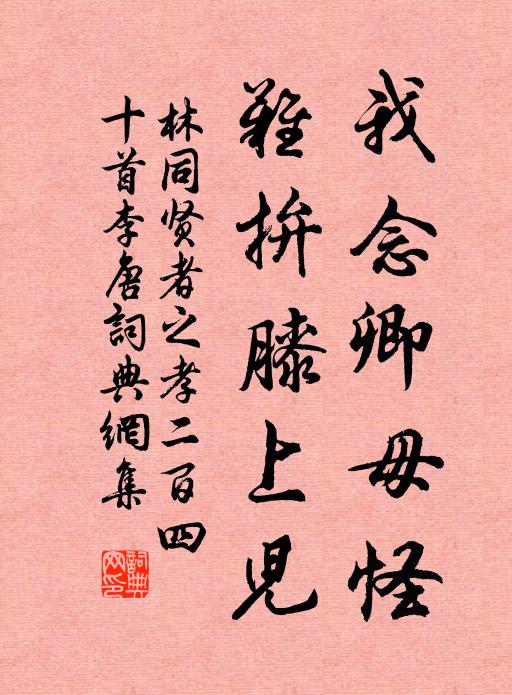 我念卿毋怪
難拚膝上児
林同贤者之孝二百四
十首李唐詞典網集
詞典
网印